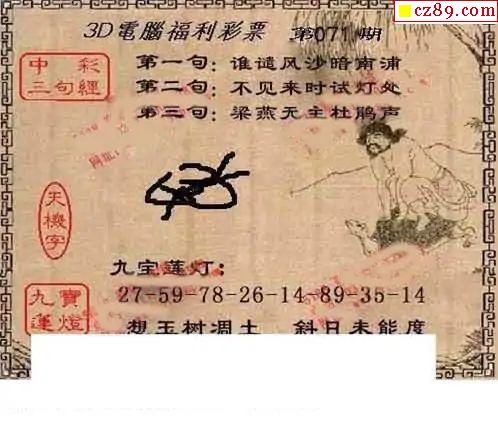 cz89.com
3D電腦福利彩票 第071期
中彩
三句經
第一句：谁谴风沙暗南浦
第二句：不见来时试灯处
第三句：梁燕无主杜鹃声
天機字
九宝莲灯：
九寶
蓮燈
27-59-78-26-14-89-35-14
想玉树凋土 斜日未能度